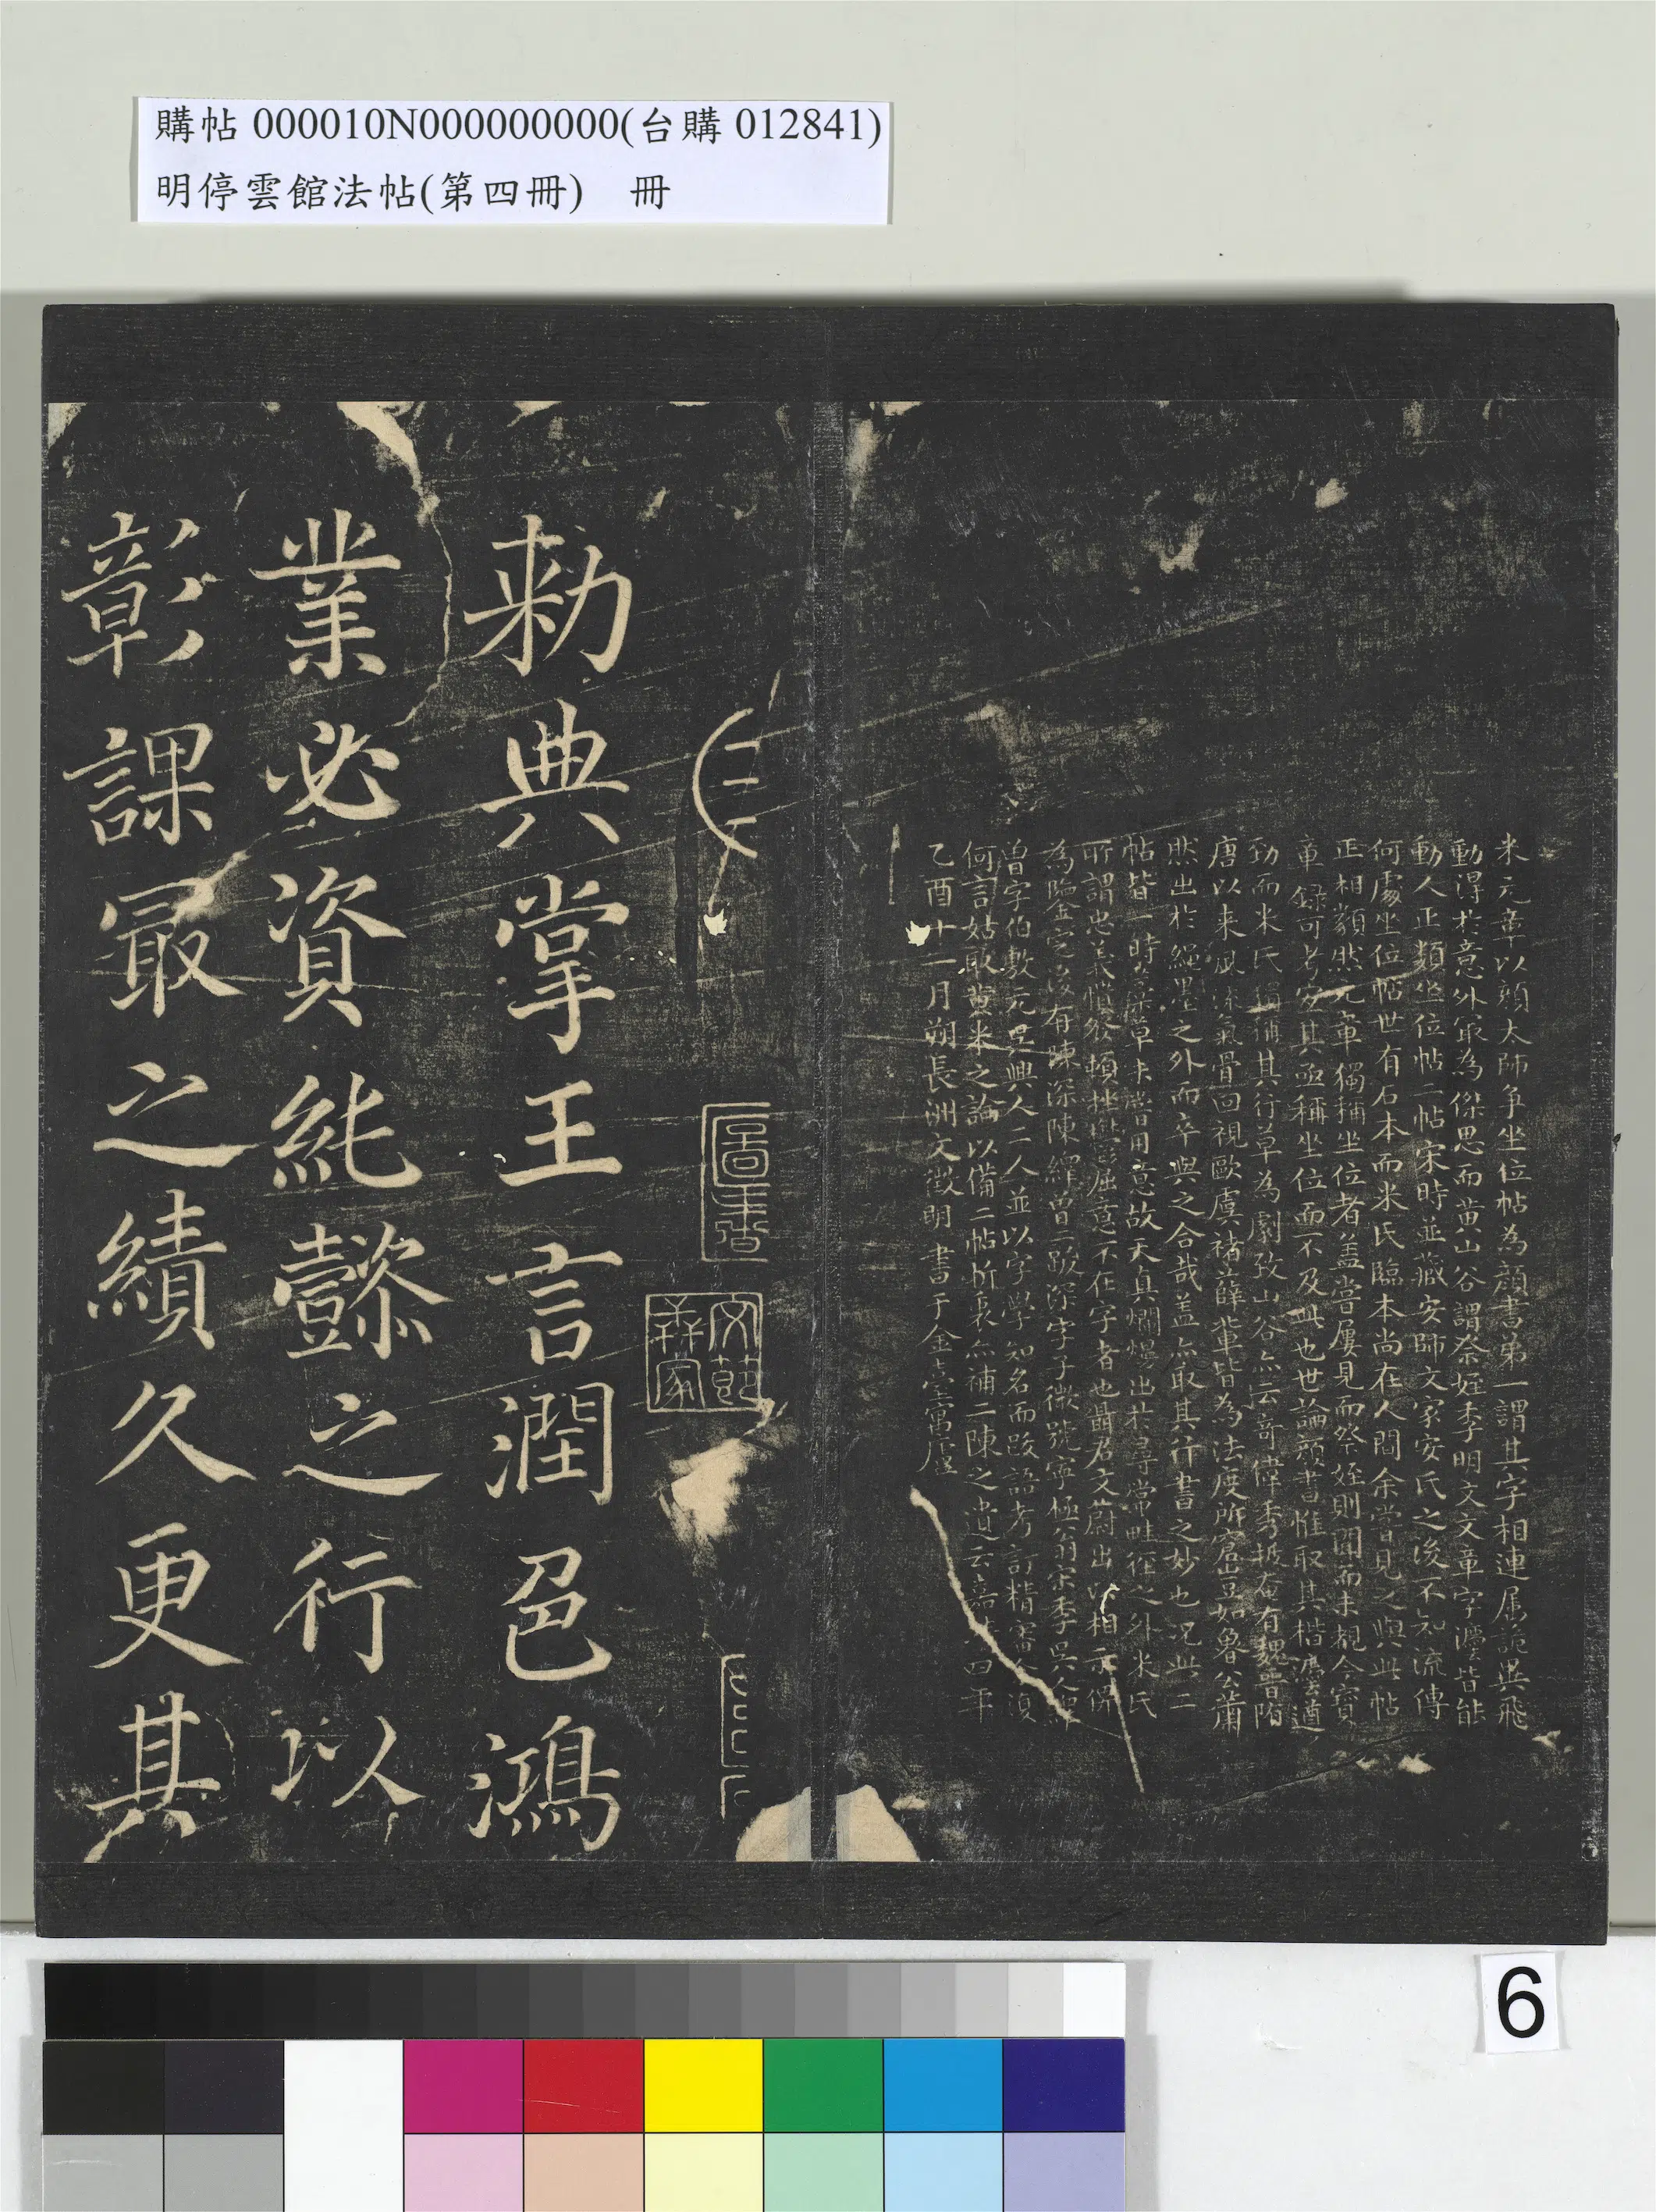 購帖 000010N000000000(台購 012841)
明停雲館法帖(第四冊) 冊
米元章以顏太師爭坐位帖為顏書第一謂其字相連屬詭異飛
動得於意外最為傑思而黃山谷謂祭姪季明文文章字灋皆能
動人正類坐位帖二帖宋時並藏安師文家安氏之後不知流傳
何處坐位帖世有石本而米氏臨本尚在人間余嘗見之與此帖
正相類然元章獨稱坐位者蓋嘗屢見而祭姪則聞而未覩今寶
章錄可考宜其亟稱坐位而不及此也世論顏書惟取其楷灋遒
勁而米氏獨稱其行草為劇致山谷亦云奇偉秀拔奄有魏晉隋
唐以來風流氣骨回視歐虞褚薛輩皆為法度所窘豈如魯公蕭
然出於繩墨之外而卒與之合哉蓋亦取其行書之妙也况此二
帖皆一時藁草未嘗用意故天真爛熳出於尋常畦徑之外米氏
所謂忠義憤發頓挫鬱屈意不在字者也聶君文蔚出以相示俾
為鑒定後有陳深陳繹曾二跋深字子微號寧極翁宋季吳人繹
曾字伯敷元吳興人二人並以字學知名而跋語考訂精審不須
何言姑取黃米之論以備二帖折衷亦補二陳之遺云嘉靖四年
乙酉十一月朔長洲文徵明書于金臺寓廬
勑典掌王言潤邑鴻
業必資純懿之行以
彰課最之績久更其